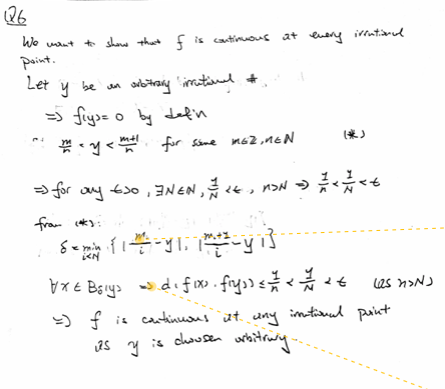 Q6
We want to show that f is continuous at every irrational
point.
Let y be an arbitrary irrational #
⇒ f(y) = 0 by def'n
∵ m/n < y < m+1/n for some m∈Z, n∈N (*)
⇒ for any ε>0, ∃N∈N, 1/N < ε, n>N ⇒ 1/n < 1/N < ε
from (*):
δ = min i<N { | m/i - y |, | m+1/i - y | }
∀x ∈ Bδ(y) ⇒ d(f(x), f(y)) ≤ 1/n < 1/N < ε (as n>N)
⇒ f is continuous at any irrational point
as y is chosen arbitrary